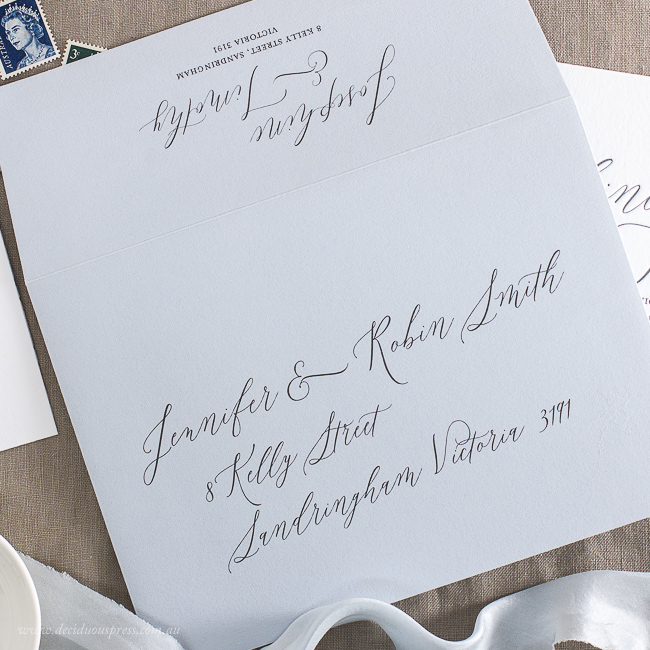 AUSTRALIA
3ᶜ
Josephine
& Timothy
8 KELLY STREET, SANDRINGHAM
VICTORIA 3191
Jennifer & Robin Smith
8 Kelly Street
Sandringham Victoria 3191
www.deciduouspress.com.au